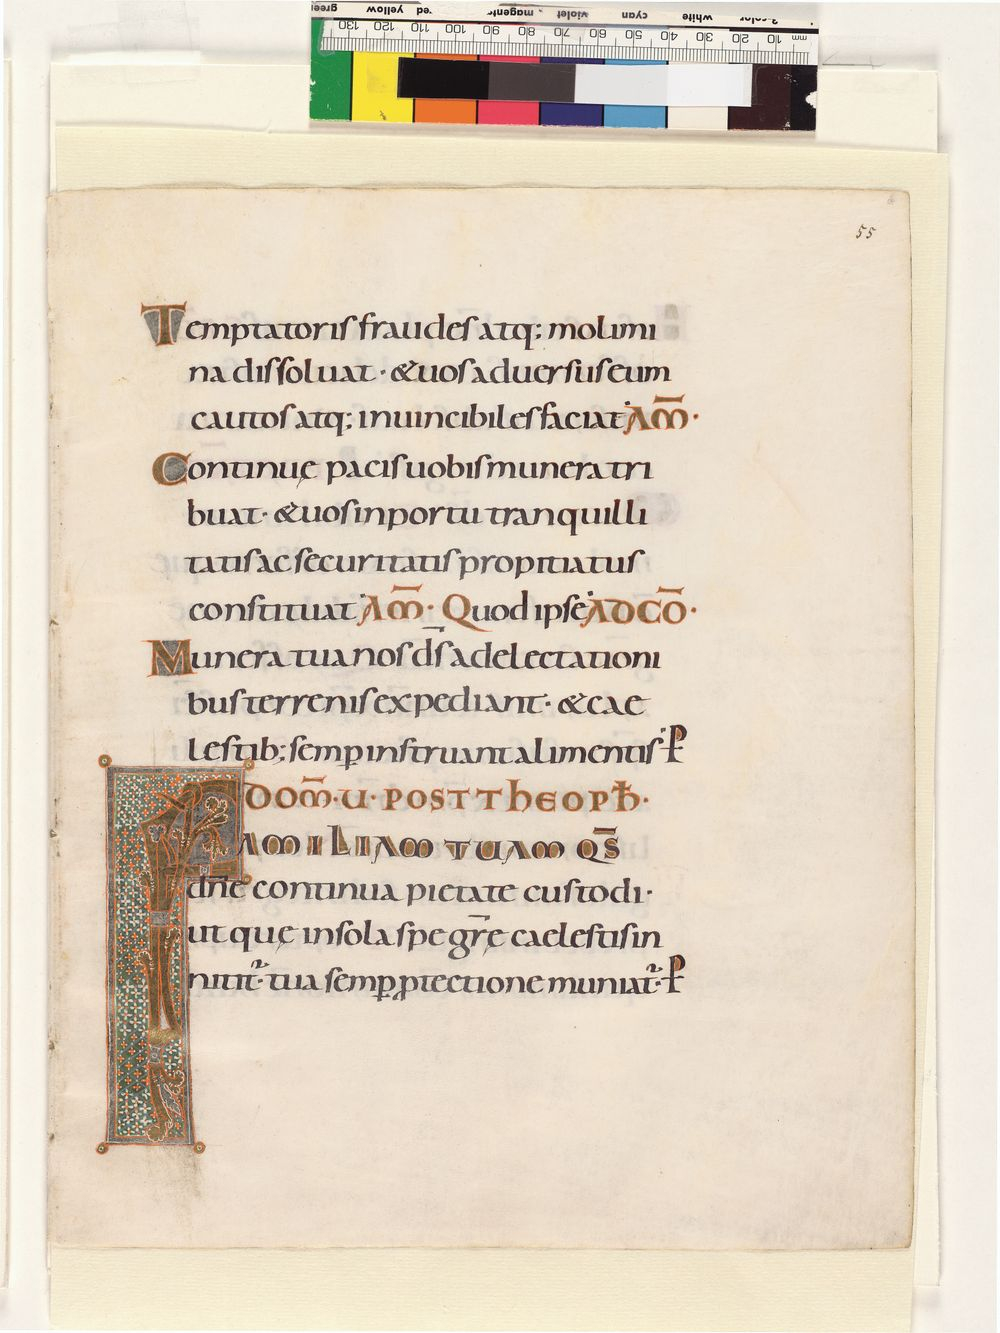 green yellow red magenta violet cyan white 3-color
130 120 110 100 90 80 70 60 50 40 30 20 10 mm
55
Temptatoris fraudes atq; molimi
na dissoluat · & uos aduersus eum
cautos atq; inuincibiles faciat AM̄·
Continuę pacis uobis munera tri
buat · & uos in portu tranquilli
tatis ac securitatis propitiatus
constituat AM̄· Quod ipse AD CŌ·
Munera tua nos d̄s a delectationi
bus terrenis expediant · & cae
lestib; semp̱ instruant alimentis· P̱
DOM̄·U·POST THEOPħ·
FAMILIAM TUAM QS̄
dn̄e continua pietate custodi·
ut quę in sola spe gr̄ę caelestis in
nitit᷑· tua semp̱ ꝓtectione muniat᷑· P̱